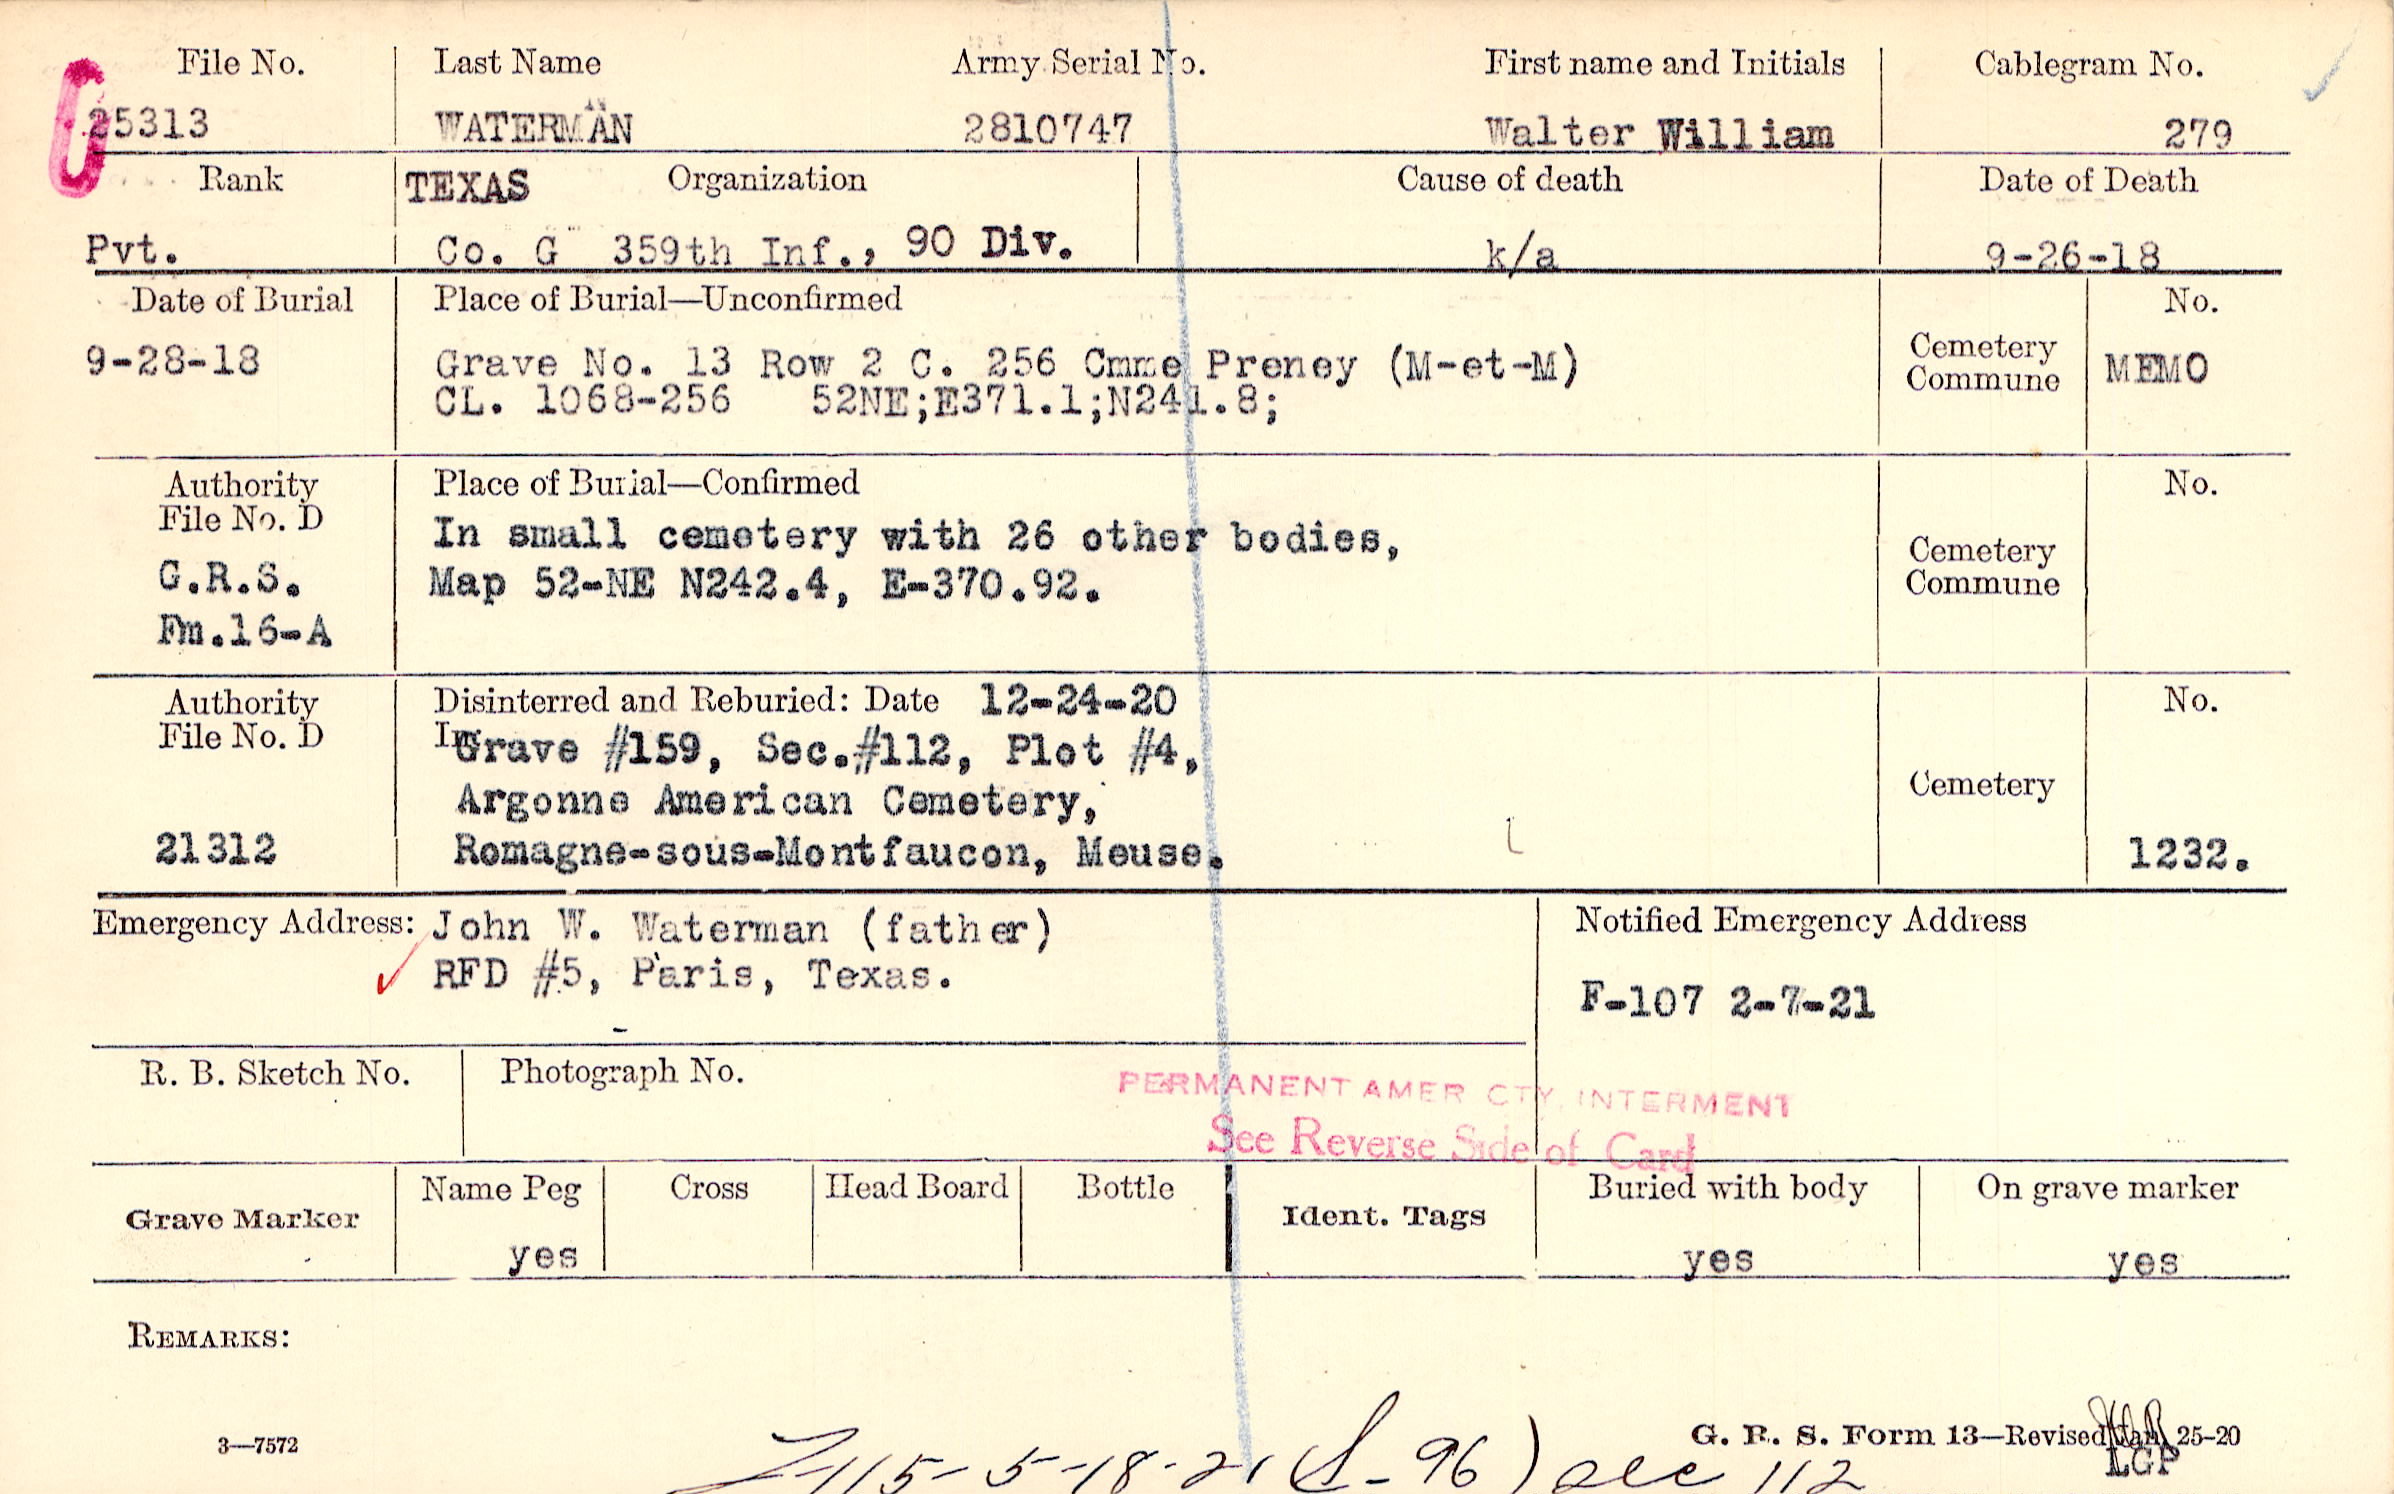 File No. Last Name Army Serial No. First name and Initials Cablegram No.
25313 WATERMAN 2810747 Walter William 279
Rank TEXAS Organization Cause of death Date of Death
Pvt. Co. G 359th Inf., 90 Div. k/a 9-26-18
Date of Burial Place of Burial—Unconfirmed No.
9-28-18 Grave No. 13 Row 2 C. 256 Cmme Preney (M-et-M) Cemetery Commune MEMO
CL. 1068-256 52NE;E371.1;N241.8;
Authority File No. D Place of Burial—Confirmed No.
G.R.S. In small cemetery with 26 other bodies, Cemetery
Fm.16-A Map 52-NE N242.4, E-370.92. Commune
Authority Disinterred and Reburied: Date 12-24-20 No.
File No. D In Grave #159, Sec.#112, Plot #4,
Argonne American Cemetery, Cemetery
21312 Romagne-sous-Montfaucon, Meuse. 1232.
Emergency Address: John W. Waterman (father) Notified Emergency Address
RFD #5, Paris, Texas. F-107 2-7-21
R. B. Sketch No. Photograph No.
PERMANENT AMER CTY. INTERMENT
See Reverse Side of Card
Grave Marker Name Peg Cross Head Board Bottle Ident. Tags Buried with body On grave marker
yes yes yes
REMARKS:
3—7572 G. R. S. Form 13—Revised Jan. 25-20
LGP
115-5-18-21 (S-96) sec 112